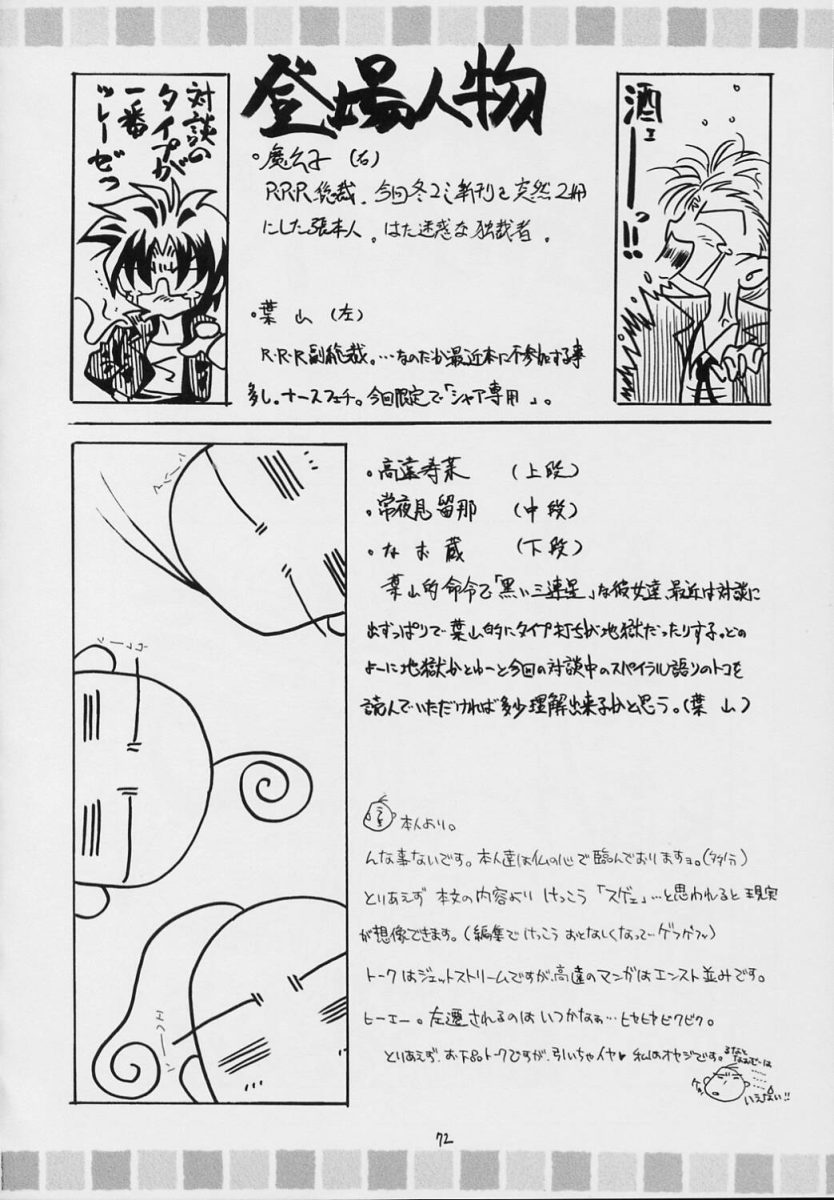 登場人物
酒ェーーっ!!
・魔公子(右)
R.R.R総裁。今回冬コミ新刊を突然2冊
にした張本人。はた迷惑な独裁者。
・葉山(左)
R・R・R副総裁。…なのだが最近本に不参加する事
多し。ナースフェチ。今回限定で「シャア専用」。
対談の
タイプが
一番
ツレーぜっ
・高遠寿葉(上段)
・常夜見留那(中段)
・なお蔵(下段)
葉山的命令で「黒い三連星」な彼女達、最近は対談に
出ずっぱりで葉山的にタイプ打ちが地獄だったりする。どの
よーに地獄かとゆーと今回の対談中のスパイラル語りのトコを
読んでいただければ多少理解出来るかと思う。(葉山)
本人より。
んな事ないです。本人達は仏の心で臨んでおりますョ。(多分)
とりあえず 本文の内容より けっこう「スゲェ」…と思われると現実
が想像できます。(編集でけっこう おとなしくなって…ゲフゲフッ)
トークはジェットストリームですが、高遠のマンガはエンスト並みです。
ヒーエー。左遷されるのはいつかなぁ…ヒヤヒヤビクビク。
とりあえず、お下品トークですが、引いちゃイヤ♥ 私はオヤジです。
るなと
いえない!!
72